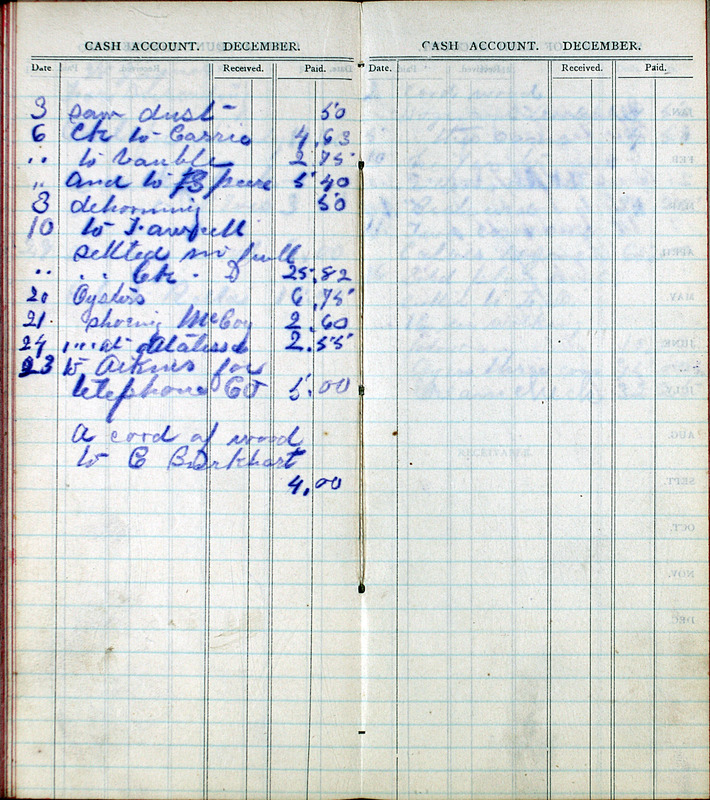 CASH ACCOUNT. DECEMBER.
Date Received. Paid.
3 saw dust 50
6 Ck to Carrie 4.63
" to 2.75
" and to 5.40
8 dehorning 50
10 to
settled in full
" " Ck. D 25.82
20 Oysters 6.75
21. shoeing McCoy 2.60
24 " at 2.55
23 to Aikins for
telephone Co 5.00
A cord of wood
to C Burkhart
4.00
CASH ACCOUNT. DECEMBER.
Date. Received. Paid.